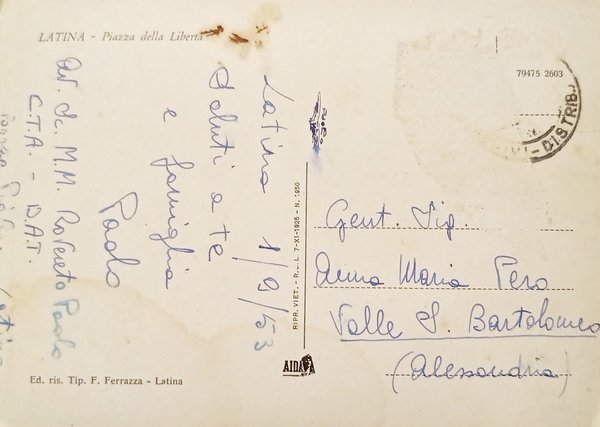 LATINA - Piazza della Libertà
79475 2603
DISTRIB
Latina 1/9/53
Saluti a te
e famiglia
Paolo
Av. Sc. M.M. Rovereto Paolo
C.T.A. - D.A.T.
Latina
Gent. Sig.
Anna Maria Pero
Valle S. Bartolomeo
(Alessandria)
RIPR. VIET. - R.L.L. 7-XI-1925 - N. 1950
AIDA
Ed. ris. Tip. F. Ferrazza - Latina